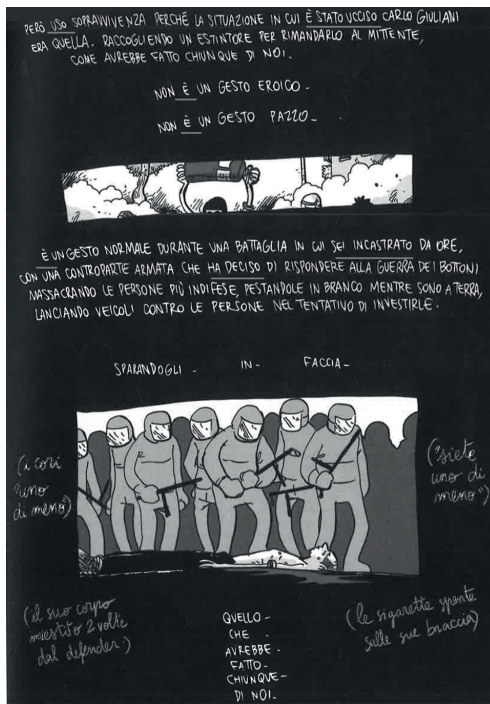 PERÒ USO SOPRAVVIVENZA PERCHÉ LA SITUAZIONE IN CUI È STATO UCCISO CARLO GIULIANI
ERA QUELLA. RACCOGLIENDO UN ESTINTORE PER RIMANDARLO AL MITTENTE,
COME AVREBBE FATTO CHIUNQUE DI NOI.
NON È UN GESTO EROICO-
NON È UN GESTO PAZZO-
È UN GESTO NORMALE DURANTE UNA BATTAGLIA IN CUI SEI INCASTRATO DA ORE,
CON UNA CONTROPARTE ARMATA CHE HA DECISO DI RISPONDERE ALLA GUERRA DEI BOTTONI
MASSACRANDO LE PERSONE PIÙ INDIFESE, PESTANDOLE IN BRANCO MENTRE SONO A TERRA,
LANCIANDO VEICOLI CONTRO LE PERSONE NEL TENTATIVO DI INVESTIRLE.
SPARANDOGLI - IN - FACCIA -
(i cori
"uno
di meno")
("siete
uno di
meno")
(il suo corpo
investito 2 volte
dal defender)
(le sigarette spente
sulle sue braccia)
QUELLO -
CHE -
AVREBBE -
FATTO -
CHIUNQUE -
DI NOI -